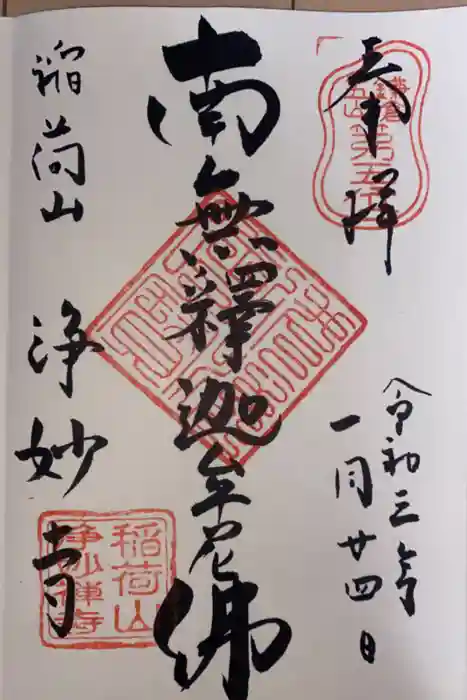 奉拝
鎌倉
五山第五位
令和三年
一月廿四日
南無釋迦牟尼佛
稲荷山
浄妙寺
稲荷山
浄妙禅寺